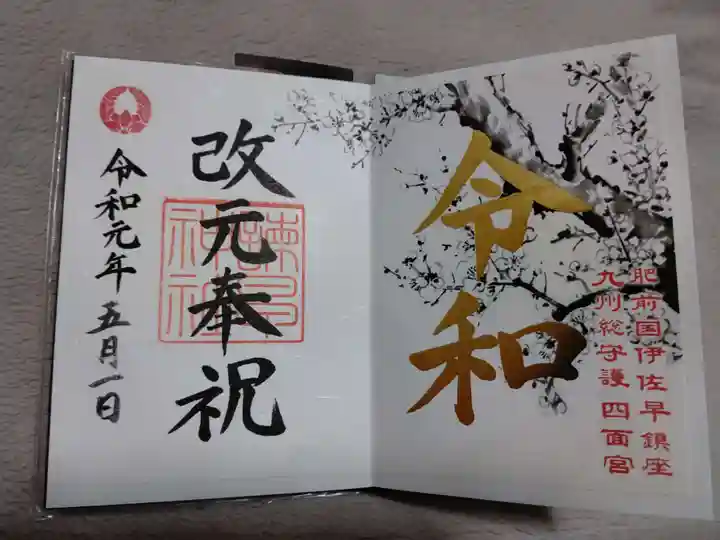 令和
肥前国伊佐早鎮座
九州総守護 四面宮
改元奉祝
諫早神社
令和元年 五月一日